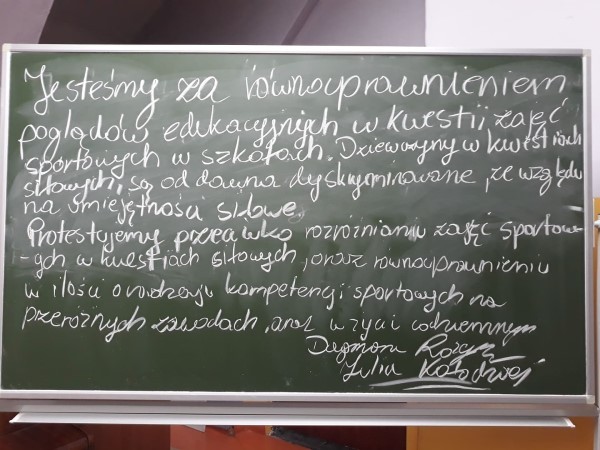 Jesteśmy za równouprawnieniem
poglądów edukacyjnych w kwestii zajęć
sportowych w szkołach. Dziewczyny w kwestiach
siłowych, są od dawna dyskryminowane, ze względu
na umiejętności siłowe.
Protestujemy przeciwko rozróżnianiu zajęć sportow-
-ych w kwestiach siłowych, oraz równouprawnieniu
w ilości rodzaju kompetencji sportowych na
przeróżnych zawodach, oraz w życiu codziennym
Dagmara
Julia Kołodziej